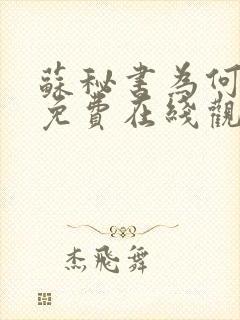 蘇秘書為何
免費在綫觀
杰飛舞